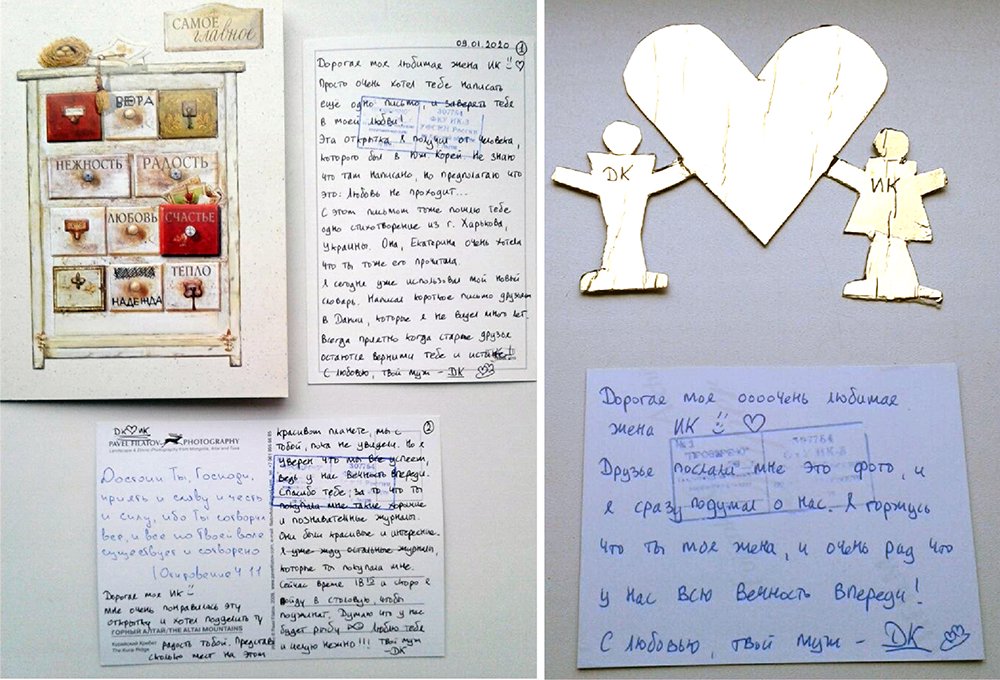 САМОЕ
главное
ВЕРА
НЕЖНОСТЬ
РАДОСТЬ
ЛЮБОВЬ
СЧАСТЬЕ
ТЕПЛО
НАДЕЖДА
09.01.2020 1
Дорогая моя любимая жена ИК
Просто очень хотел тебе написать
ещё одно письмо, и заверять тебя
в моей любви!
Эта открытка я получил от человека,
которого был в Юж. Корей. Не знаю
что там написано, но предполагаю что
это: Любовь не проходит...
С этот письмом тоже пошлю тебе
одно стихотворение из г. Харькова,
Украины. Она, Екатерина очень хотела
что ты тоже его прочитала.
Я сегодня уже использовал мой новый
словарь. Написал короткое письмо друзьям
в Дании, которые я не видел много лет.
Всегда приятно когда старые друзья
остаются верними тебе и истине!
С любовью, твой муж - DK
307754
ФКУ ИК-3
DK ИК
PAVEL FILATOV PHOTOGRAPHY
Landscape & Ethnic Photography from Mongolia, Altai and Tuva
Достоин Ты, Господи,
принять и славу и честь
и силу, ибо Ты сотворил
все, и все по Твоей воле
существует и сотворено
Откровение 4 11
Дорогая моя ИК
мне очень понравилась эту
открытку и хотел поделить ту
ГОРНЫЙ АЛТАЙ/THE ALTAI MOUNTAINS
Курайский Хребет
The Kurai Ridge
радость тобой. Представь
сколько мест на этом
2
красивой планете, мы с
тобой, пока не увидели. Но я
уверен что мы все успеем,
ведь у нас вечность впереди.
Спасибо тебе, за то что ты
покупала мне такие хорошие
и познавательные журналы.
Они были красивое и интересные.
Я уже жду остальные журналы,
которые ты покупала мне.
Сейчас время 18 и скоро я
пойду в столовую, чтобы
поужинать. Думаю что у нас
будет рыбу Люблю тебя
и целую нежно!!! Твой муж
-DK
307754
DK
ИК
Дорогая моя оооочень любимая
жена ИК
Друзье послали мне это фото, и
я сразу подумал о нас. Я горжусь
что ты моя жена, и очень рад что
у нас всю вечность впереди!
С Любовью, твой муж - DK
№ 3
"ПРОВЕРЕНО"
307754
ФКУ ИК-3